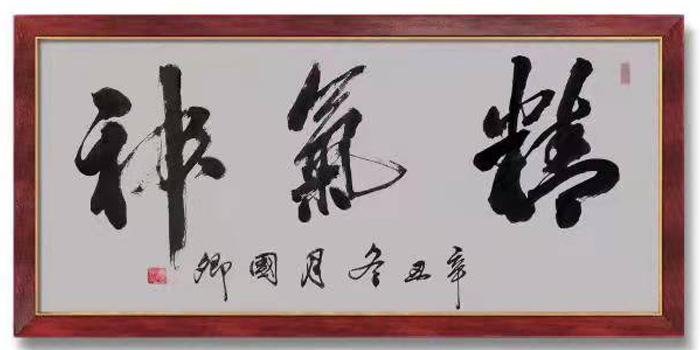 精氣神
辛丑冬月國卿